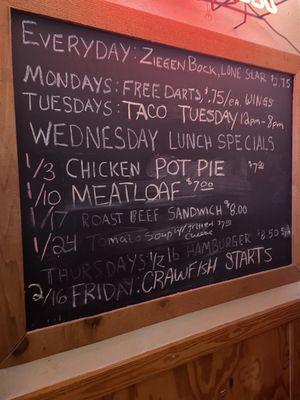 EVERYDAY: ZIEGENBOCK, LONE STAR $2.75
MONDAYS: FREE DARTS $.75/ea. WINGS
TUESDAYS: TACO TUESDAY 12pm-8pm
WEDNESDAY LUNCH SPECIALS
1/3 CHICKEN POT PIE $7.00
1/10 MEATLOAF $7.00
1/17 ROAST BEEF SANDWICH $8.00
1/24 Tomato Soup w/ grilled cheese $7.00
THURSDAYS: 1/2 lb HAMBURGER $8.50
2/16 FRIDAY: CRAWFISH STARTS